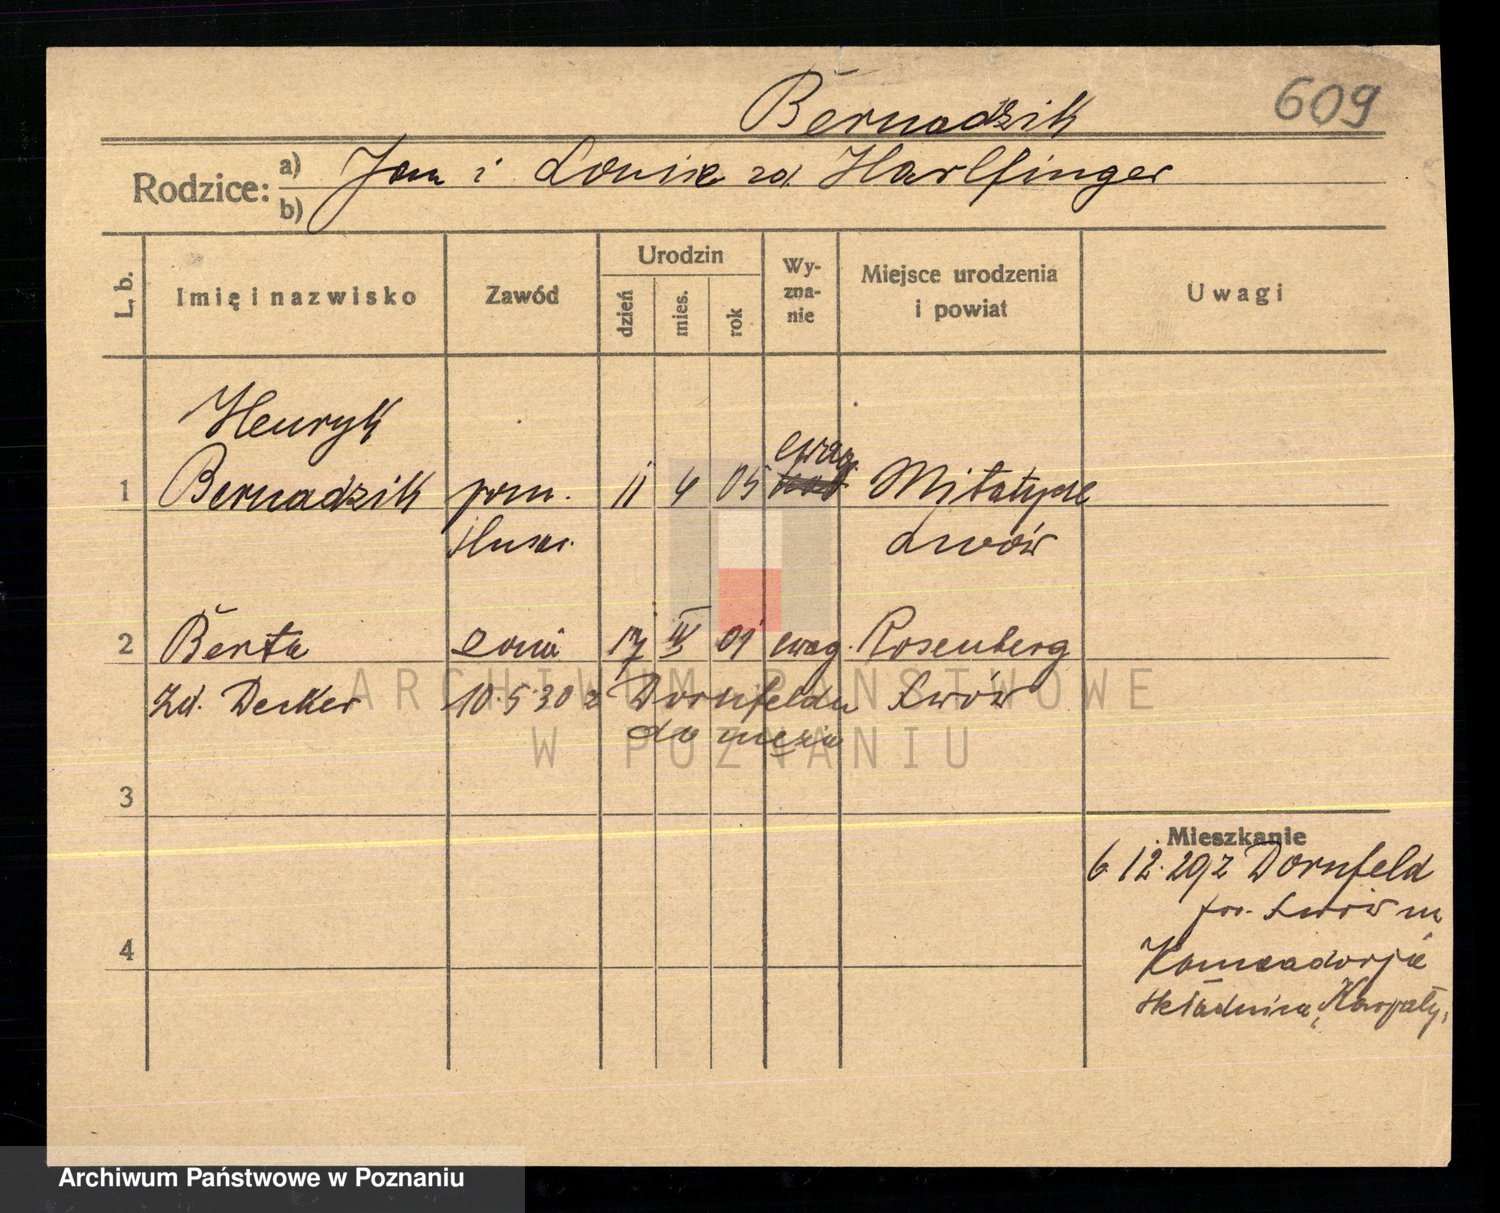 609
Bernadzik
Rodzice: a) b) Jan i Louise zd. Harlfinger
L. b. Imię i nazwisko Zawód Urodzin dzień mies. rok Wyzna-nie Miejsce urodzenia i powiat Uwagi
Henryk
ewag.
1 Bernadzik pom. 11 4 05 Mitatyze
ślusar. Lwów
2 Berta żona 17 IV 01 ewag. Rosenberg
zd. Decker 10.5.30 z Dornfeldu Lwów
do męża
3
Mieszkanie
6.12.29 z Dornfeld
pow. Lwów
4
Komandorja
składnica „Karpaty"
ARCHIWUM PAŃSTWOWE
W POZNANIU
Archiwum Państwowe w Poznaniu